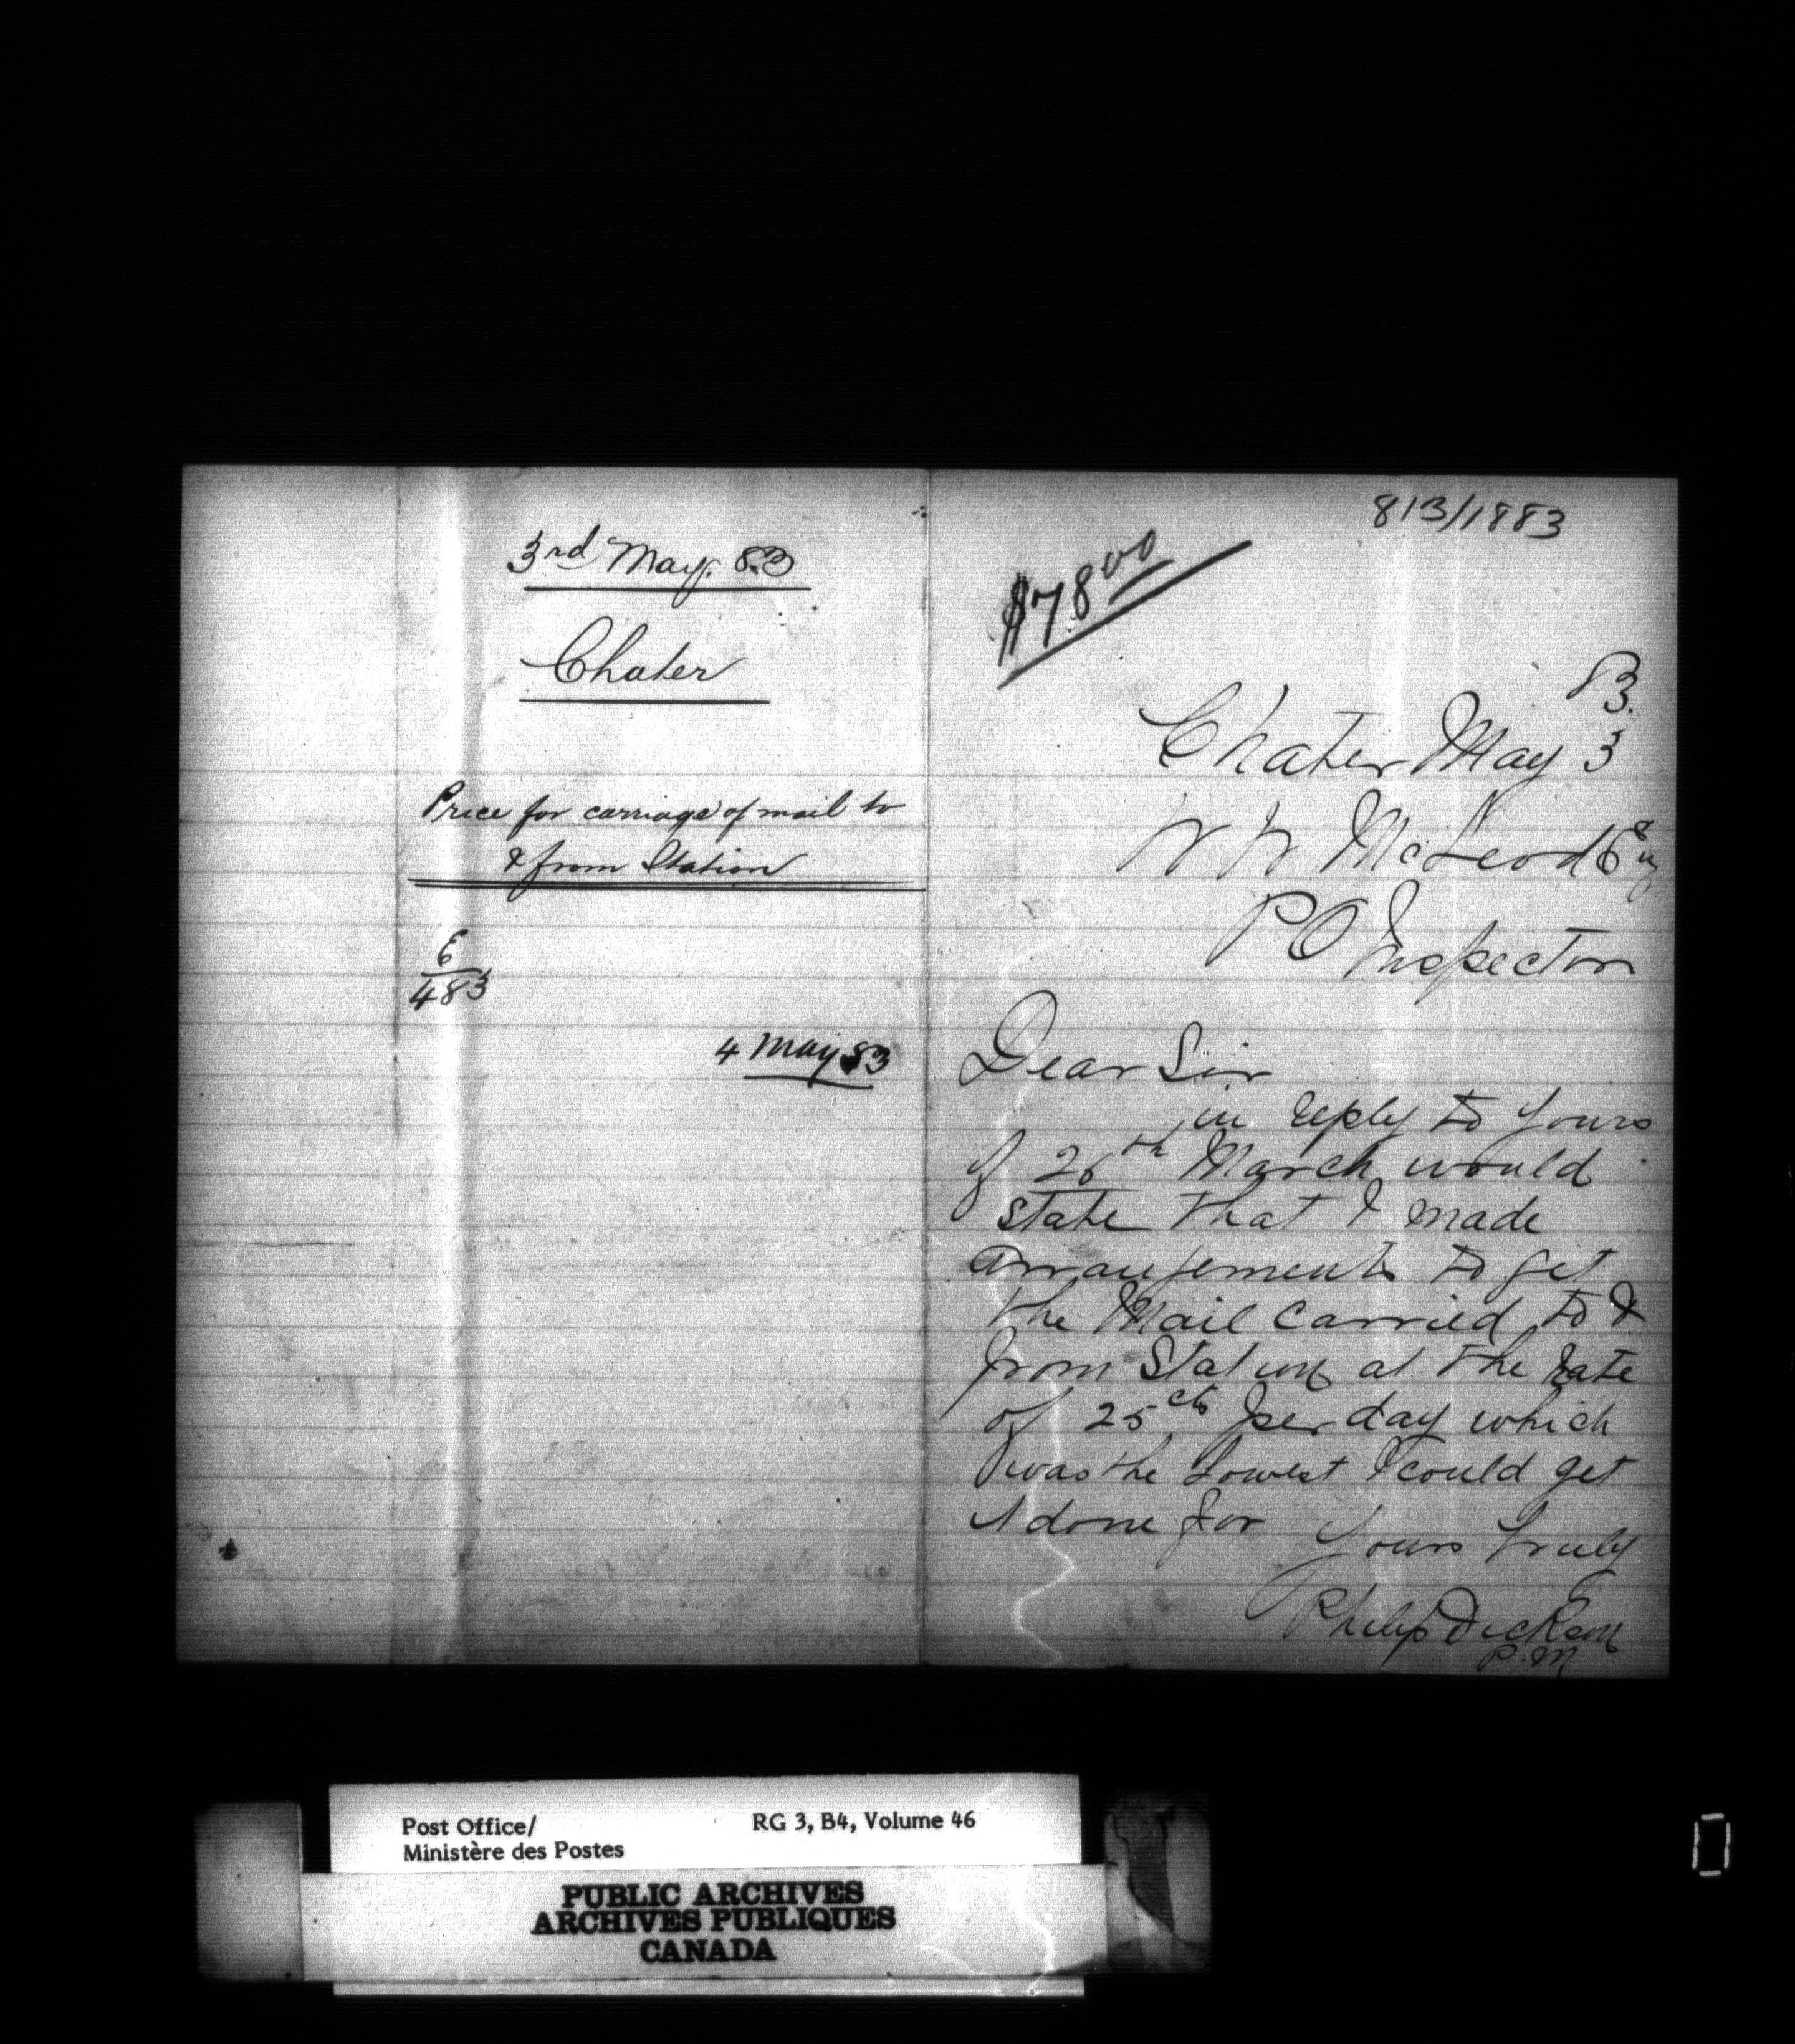 3rd May. 83
Chater
Price for carriage of mail to
& from Station
E
483
4 May 83
813/1883
$78 00
83.
Chater May 3
W W McLeod Esq
P O Inspector
Dear Sir
in reply to yours
of 26th March would
state that I made
arrangements to get
the Mail carried to &
from Station at the rate
of 25 cts per day which
was the lowest I could get
it done for
Yours truly
Philip Dickson
P.M
Post Office/
Ministère des Postes
RG 3, B4, Volume 46
PUBLIC ARCHIVES
ARCHIVES PUBLIQUES
CANADA